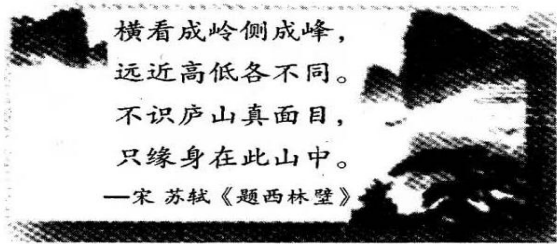 横看成岭侧成峰，
远近高低各不同。
不识庐山真面目，
只缘身在此山中。
—宋 苏轼《题西林壁》